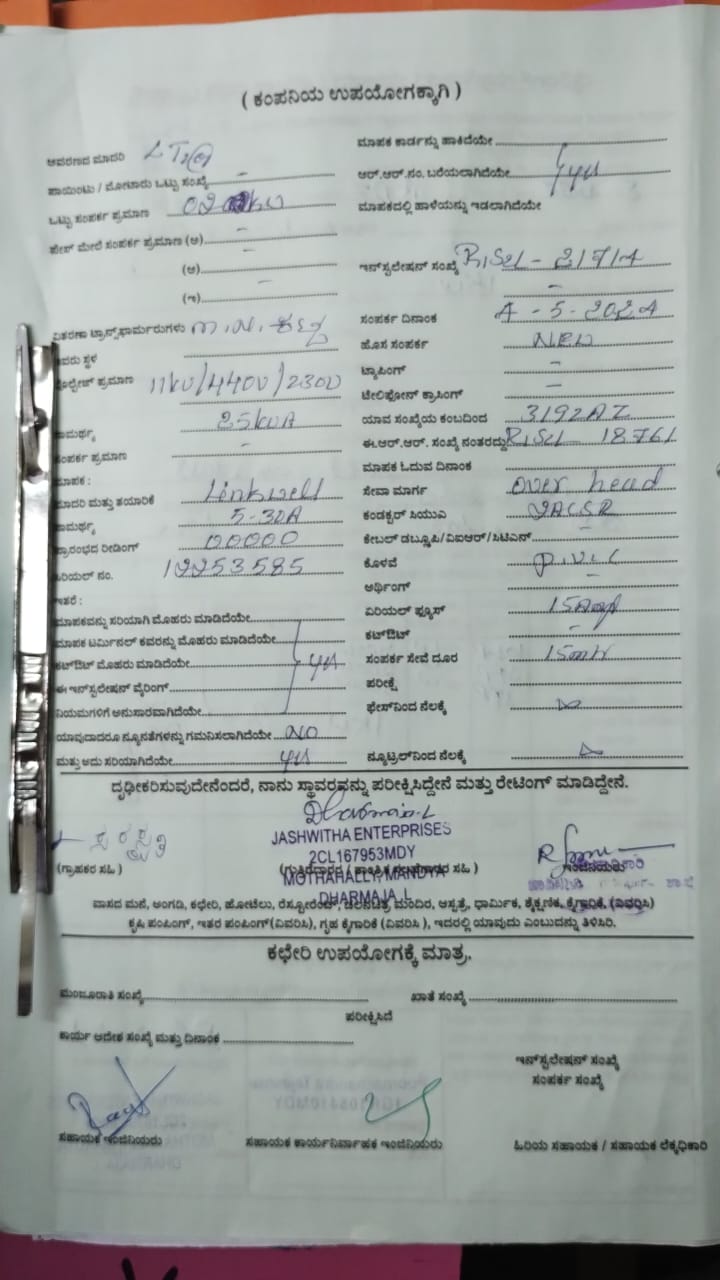 ( ಕಂಪನಿಯ ಉಪಯೋಗಕ್ಕಾಗಿ )
ಆವರಣದ ಮಾದರಿ LT
ಪಾಯಿಂಟು / ಮೋಟಾರು ಒಟ್ಟು ಸಂಖ್ಯೆ -
ಒಟ್ಟು ಸಂಪರ್ಕ ಪ್ರಮಾಣ
ಫೇಸ್ ಮೇಲೆ ಸಂಪರ್ಕ ಪ್ರಮಾಣ (ಅ) -
(ಆ) -
(ಇ) -
ವಿತರಣಾ ಟ್ರಾನ್ಸ್‌ಫಾರ್ಮರುಗಳು
ಇರುವ ಸ್ಥಳ
ವೋಲ್ಟೇಜ್ ಪ್ರಮಾಣ 11KV/440V/230V
ಸಾಮರ್ಥ್ಯ 25KVA
ಸಂಪರ್ಕ ಪ್ರಮಾಣ -
ಮಾಪಕ :
ಮಾದರಿ ಮತ್ತು ತಯಾರಿಕೆ Linkwell
ಸಾಮರ್ಥ್ಯ 5-30A
ಪ್ರಾರಂಭದ ರೀಡಿಂಗ್ 00000
ಸಿರಿಯಲ್ ನಂ. 12253585
ಇತರೆ :
ಮಾಪಕವನ್ನು ಸರಿಯಾಗಿ ಮೊಹರು ಮಾಡಿದೆಯೇ
ಮಾಪಕ ಟರ್ಮಿನಲ್ ಕವರನ್ನು ಮೊಹರು ಮಾಡಿದೆಯೇ
ಕಟ್‌ಔಟ್ ಮೊಹರು ಮಾಡಿದೆಯೇ yes
ಈ ಇನ್‌ಸ್ಟಲೇಷನ್ ವೈರಿಂಗ್
ನಿಯಮಗಳಿಗೆ ಅನುಸಾರವಾಗಿದೆಯೇ
ಯಾವುದಾದರೂ ನ್ಯೂನತೆಗಳನ್ನು ಗಮನಿಸಲಾಗಿದೆಯೇ NO
ಮತ್ತು ಅದು ಸರಿಯಾಗಿದೆಯೇ yes
ಮಾಪಕ ಕಾರ್ಡನ್ನು ಹಾಕಿದೆಯೇ
ಆರ್.ಆರ್.ನಂ. ಬರೆಯಲಾಗಿದೆಯೇ yes
ಮಾಪಕದಲ್ಲಿ ಹಾಳೆಯನ್ನು ಇಡಲಾಗಿದೆಯೇ
ಇನ್‌ಸ್ಟಲೇಷನ್ ಸಂಖ್ಯೆ
-
ಸಂಪರ್ಕ ದಿನಾಂಕ 4-5-2024
ಹೊಸ ಸಂಪರ್ಕ NEW
ಟ್ಯಾಪಿಂಗ್ -
ಟೆಲಿಫೋನ್ ಕ್ರಾಸಿಂಗ್ -
ಯಾವ ಸಂಖ್ಯೆಯ ಕಂಬದಿಂದ
ಈ.ಆರ್.ಆರ್. ಸಂಖ್ಯೆ ನಂತರದ್ದು 18761
ಮಾಪಕ ಓದುವ ದಿನಾಂಕ
ಸೇವಾ ಮಾರ್ಗ over head
ಕಂಡಕ್ಟರ್ ಸಿಯುವಿ
ಕೇಬಲ್ ಡಬ್ಲೂಪಿ/ವಿಐಆರ್/ಸಿಟಿಎಸ್
ಕೊಳವೆ P.V.C
ಅರ್ಥಿಂಗ್ -
ಏರಿಯಲ್ ಫ್ಯೂಸ್ 15Amp
ಕಟ್‌ಔಟ್ -
ಸಂಪರ್ಕ ಸೇವೆ ದೂರ 15mtr
ಪರೀಕ್ಷೆ
ಫೇಸ್‌ನಿಂದ ನೆಲಕ್ಕೆ
ನ್ಯೂಟ್ರಲ್‌ನಿಂದ ನೆಲಕ್ಕೆ
ದೃಢೀಕರಿಸುವುದೇನೆಂದರೆ, ನಾನು ಸ್ಥಾವರವನ್ನು ಪರೀಕ್ಷಿಸಿದ್ದೇನೆ ಮತ್ತು ರೇಟಿಂಗ್ ಮಾಡಿದ್ದೇನೆ.
Dharmaja.L
JASHWITHA ENTERPRISES
2CL167953MDY
MOTHAHALLY, MANDYA
DHARMAJA .L
(ಗ್ರಾಹಕರ ಸಹಿ )
ಇಂಜಿನಿಯರು
ವಾಸದ ಮನೆ, ಅಂಗಡಿ, ಕಛೇರಿ, ಹೋಟೆಲು, ರೆಸ್ಟೋರೆಂಟ್, ಚಲನಚಿತ್ರ ಮಂದಿರ, ಆಸ್ಪತ್ರೆ, ಧಾರ್ಮಿಕ, ಶೈಕ್ಷಣಿಕ, ಕೈಗಾರಿಕೆ, (ವಿವರಿಸಿ)
ಕೃಷಿ ಪಂಪಿಂಗ್, ಇತರ ಪಂಪಿಂಗ್(ವಿವರಿಸಿ), ಗೃಹ ಕೈಗಾರಿಕೆ (ವಿವರಿಸಿ ), ಇದರಲ್ಲಿ ಯಾವುದು ಎಂಬುದನ್ನು ತಿಳಿಸಿರಿ.
ಕಛೇರಿ ಉಪಯೋಗಕ್ಕೆ ಮಾತ್ರ.
ಮಂಜೂರಾತಿ ಸಂಖ್ಯೆ
ಖಾತೆ ಸಂಖ್ಯೆ
ಪರೀಕ್ಷಿಸಿದೆ
ಕಾರ್ಯ ಆದೇಶ ಸಂಖ್ಯೆ ಮತ್ತು ದಿನಾಂಕ
ಇನ್‌ಸ್ಟಲೇಷನ್ ಸಂಖ್ಯೆ
ಸಂಪರ್ಕ ಸಂಖ್ಯೆ
ಸಹಾಯಕ ಇಂಜಿನಿಯರು
ಸಹಾಯಕ ಕಾರ್ಯನಿರ್ವಾಹಕ ಇಂಜಿನಿಯರು
ಹಿರಿಯ ಸಹಾಯಕ / ಸಹಾಯಕ ಲೆಕ್ಕಾಧಿಕಾರಿ